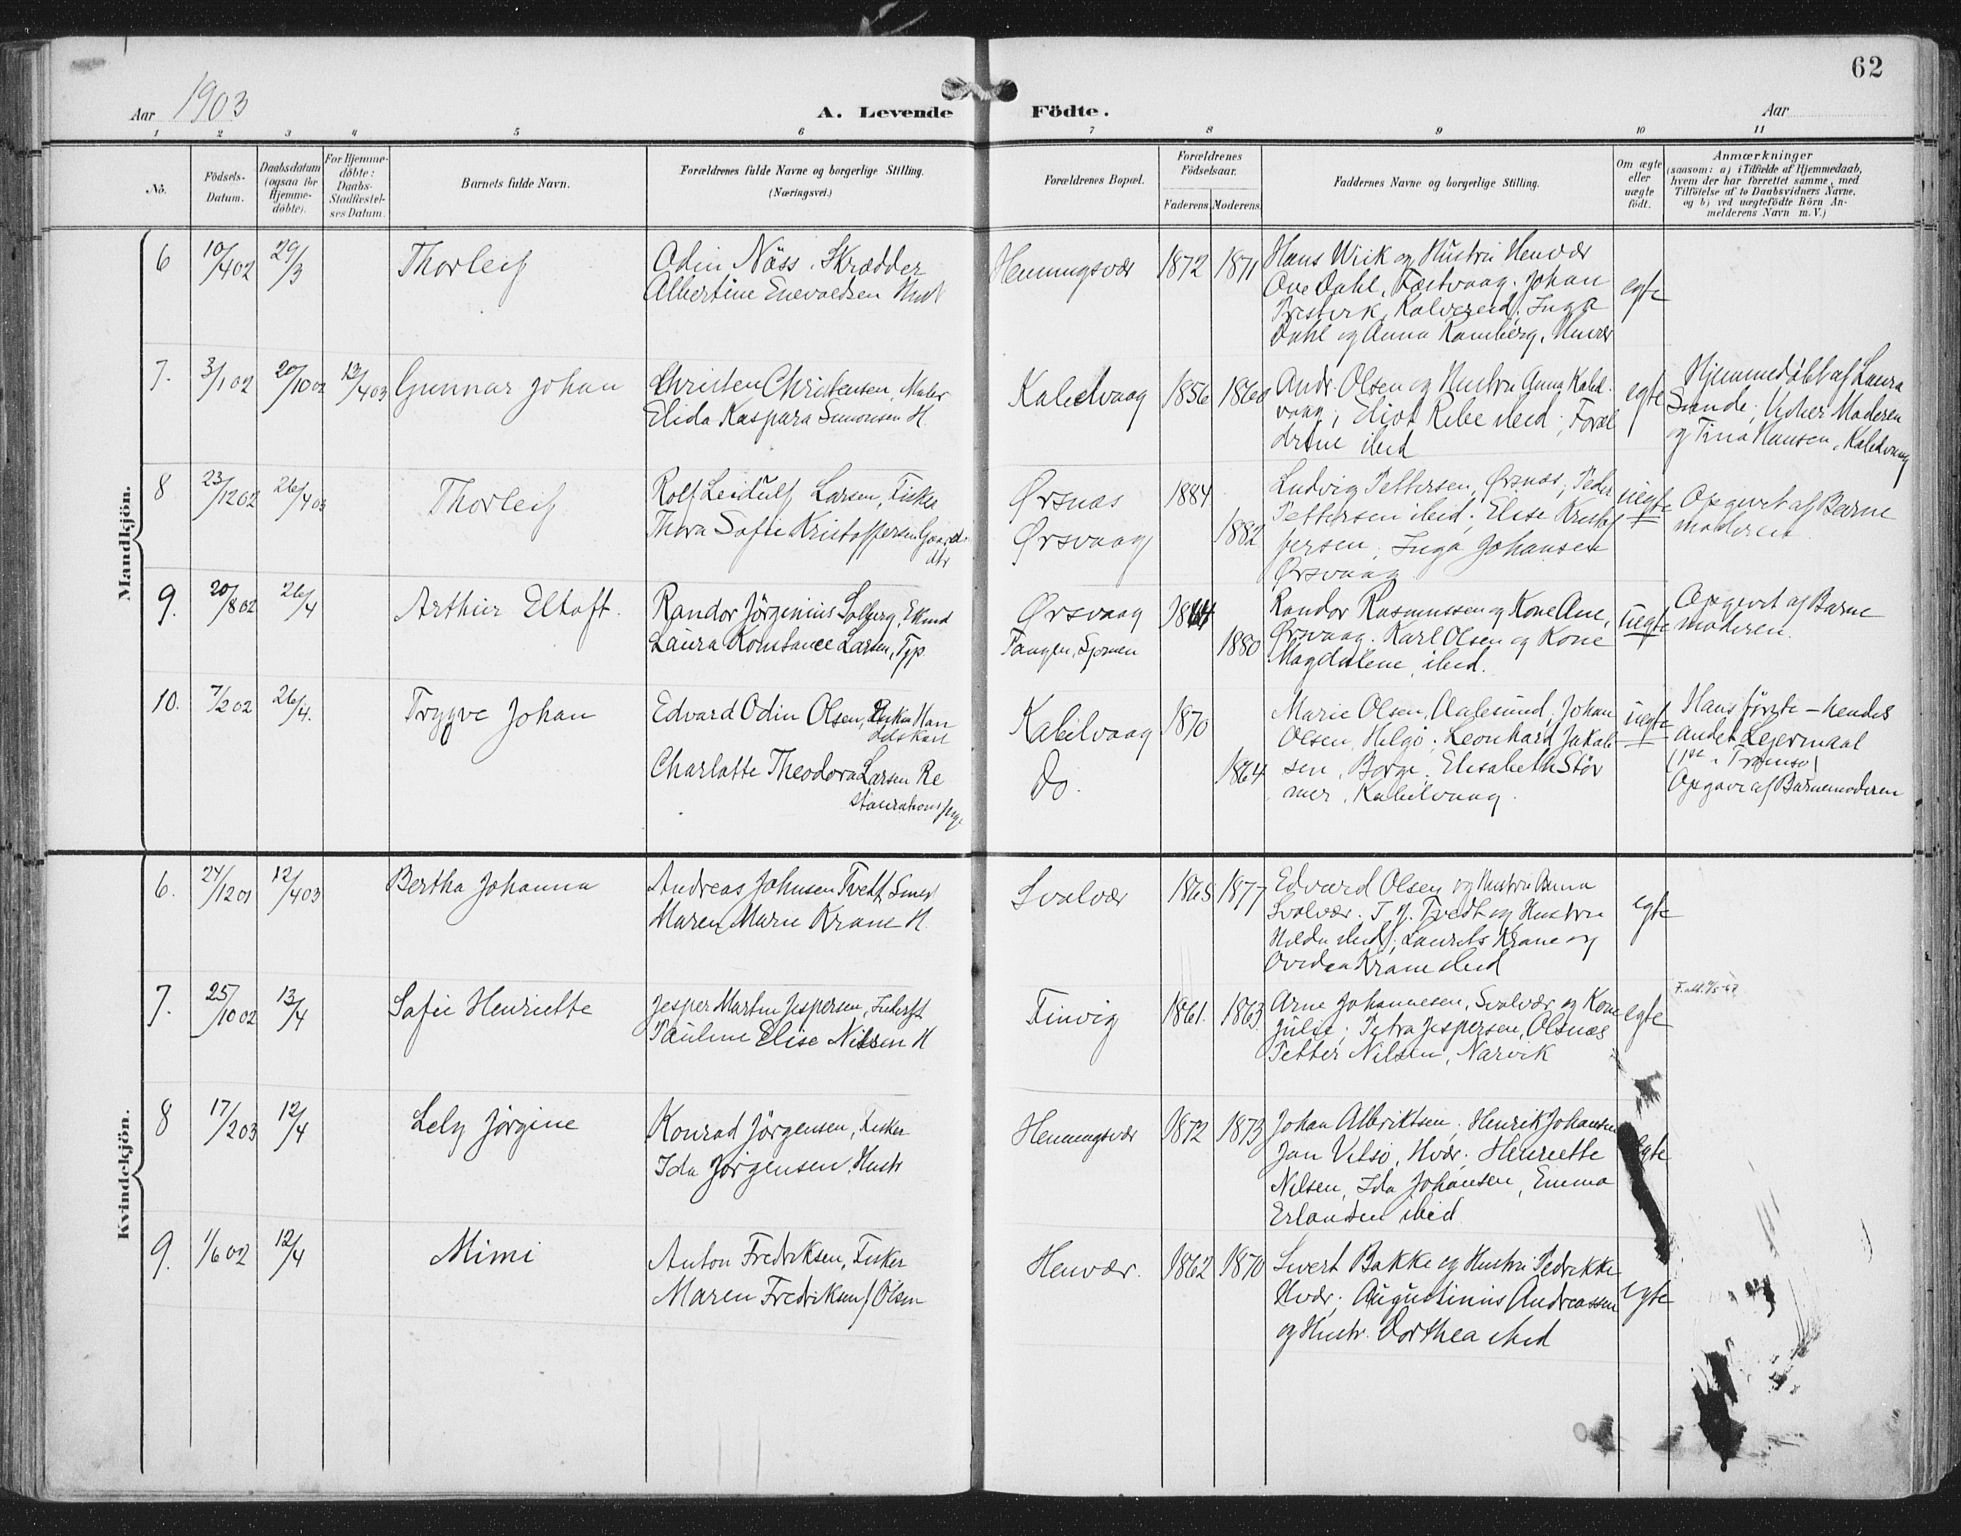 62
Aar 1903
A. Levende Födte.
Aar
1 2 3 4 5 6 7 8 9 10 11
No.
Födsels-
Datum.
Daabsdatum
(ogsaa for
Hjemme-
döbte).
For Hjemme-
döbte:
Daabs-
Stadfæstel-
ses Datum.
Barnets fulde Navn.
Forældrenes fulde Navne og borgerlige Stilling.
(Næringsvei.)
Forældrenes Bopæl.
Forældrenes
Födselsaar.
Faderens. Moderens.
Faddernes Navne og borgerlige Stilling.
Om ægte
eller
uægte
födt.
Anmærkninger
(saasom: a) i Tilfælde af Hjemmedaab,
hvem der har forrettet samme, med
Tilföielse af to Daabsvidners Navne,
og b) ved uægtefödte Börn An-
melderens Navn m. V.)
Mandkjön.
6 10/4 02 29/3 Thorleif
Odin Näss, Skrædder
Albertine Enevoldsen Hust
Henningsvær 1872 1871
Hans Wiik og Hustru Henvær
Ove Dahl, Festvaag. Johan
Kalvereid, Inga
Dahl og Anna Ramberg, Henvær
egte
7. 3/1 02 20/10 02 13/4 03 Gunnar Johan
Christen Christensen, Maler
Elida Kaspara Simonsen H.
Kabelvaag 1856 1860
Andr. Olsen og Hustru Anna Kabel-
vaag; Eliot Ribe ibid; Foræl
drene ibid
egte
Hjemmedøbt af Laura
Sunde; Vidner Moderen
og Tina Hansen, Kabelvaag
8 23/12 02 26/4 03 Thorleif
Rolf Leidulf Larsen, Fisker
Thora Sofie Kristoffersen Gaard-
dtr
Ørsnæs 1884
Ørsvaag 1882
Ludvig Pettersen, Ørsnæs, Peder
Pettersen ibid; Elise Kristof
fersen, Inga Johansen
Ørsvaag
uegte
Opgivet af Barne
moderen.
9. 20/8 02 26/4 Arthur Eltoft.
Randor Jörgenius Solberg, Ekmd
Laura Konstance Larsen, Typ.
Ørsvaag
Fangen, Sjomen 1880
Randor Rasmussen og Kone Ane,
Ørsvaag. Karl Olsen og Kone
Magdalene, ibid.
uegte
Opgivet af Barne
moderen.
10. 7/2 02 26/4. Trygve Johan
Edvard Odin Olsen, Fisker Han
delskar
Charlotte Theodora Larsen Re
staurationspige
Kabelvaag 1870
Do. 1864
Marie Olsen, Aalesund, Johan
Olsen, Helgø; Leonhard Jakob-
sen, Borge; Elisabeth Stör
mer, Kabelvaag.
uegte
Hans förste - hendes
andet Leiermaal
(1ste i Tromsø)
Opgave af Barnemoderen
Kvindekjön.
6. 24/12 01 12/4 03 Bertha Johanna
Andreas Johnsen Tvedt, Smed
Maren Marie Krane H.
Svolvær 1865 1877
Edvard Olsen og Hustru Anna
Svolvær. T. J. Tvedt og Hustru
Hilda ibid; Laurits Krane og
Ovidia Krane ibid
egte
7. 25/10 02 13/4 Sofie Henriette
Jesper Martin Jespersen, Inderst
Pauline Elise Nilsen H
Finvig 1861. 1863
Arne Johannesen, Svolvær og Kone
Julie; Petra Jespersen, Olsnæs
Petter Nilsen, Narvik
egte
8 17/2 03 12/4 Lely Jørgine
Konrad Jørgensen, Fisker
Ida Jørgensen, Hustr
Henningsvær 1872 1873
Johan Albriktsen; Henrik Johansen
Jan Velsø, Hvær; Henriette
Nilsen, Ida Johansen, Emma
Erlandsen ibid
egte
9. 1/6 02 12/4 Mimi
Anton Fredriksen, Fisker
Maren Fredriksen f Olsen
Henvær. 1862 1870
Sivert Bakke og Hustru Pedrikke
Hvær; Augustinius Andreassen
og Hustr. Dorthea ibid
egte